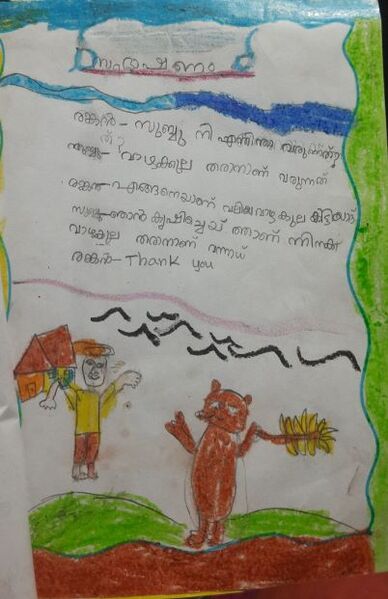 സംഭാഷണം
രങ്കൻ - സുബ്ബു നീ എന്തിനാ വരുന്നത്?
സുബ്ബു - വാഴക്കുല തരാനാണ് വരുന്നത്
രങ്കൻ - എങ്ങനെയാണ് വലിയ വാഴകുല കിട്ടിയത്
സുബ്ബു - ഞാൻ കൃഷിച്ചെയ്തതാണ് നിനക്ക്
വാഴക്കുല തരാനാണ് വന്നത്
രങ്കൻ - Thank you